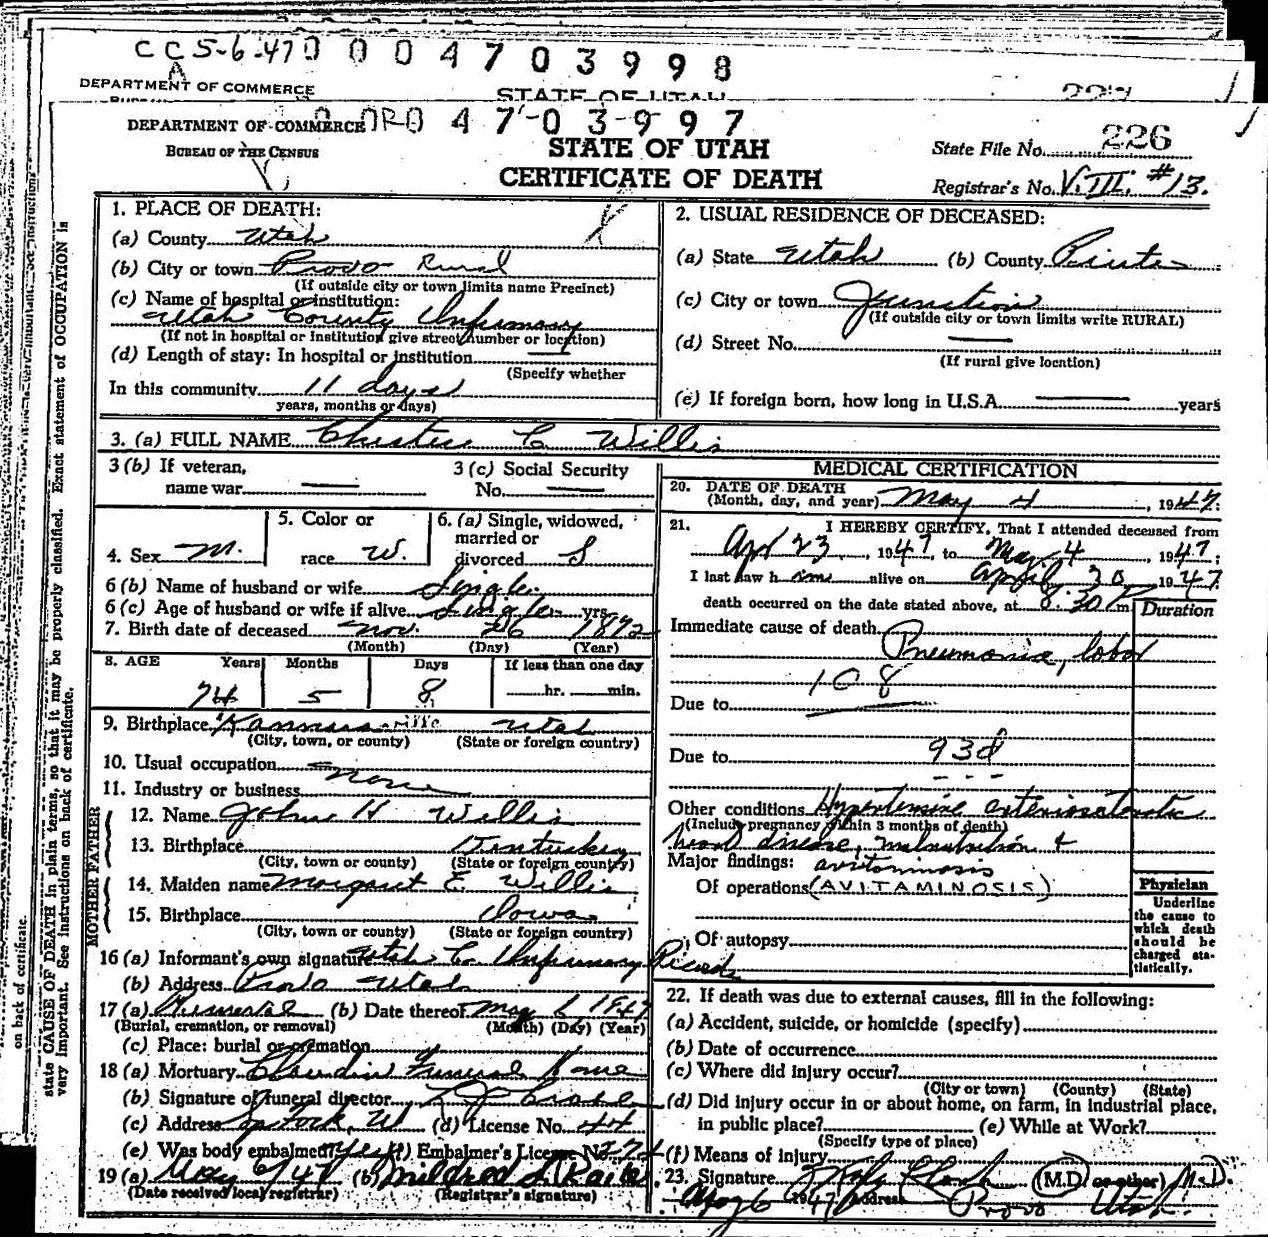 CC 5-6-47 0 0 0 4 7 0 3 9 9 8
DEPARTMENT OF COMMERCE
STATE OF UTAH
227
DEPARTMENT OF COMMERCE 0 4 7 0 3 9 9 7
BUREAU OF THE CENSUS
STATE OF UTAH
CERTIFICATE OF DEATH
State File No. 226
Registrar's No. V.III. #13.
1. PLACE OF DEATH:
(a) County Utah
(b) City or town Provo Rural
(If outside city or town limits name Precinct)
(c) Name of hospital or institution:
Utah County Infirmary
(If not in hospital or institution give street number or location)
(d) Length of stay: In hospital or institution —
(Specify whether
In this community 11 days
years, months or days)
2. USUAL RESIDENCE OF DECEASED:
(a) State Utah (b) County Piute
(c) City or town Junction
(If outside city or town limits write RURAL)
(d) Street No. —
(If rural give location)
(e) If foreign born, how long in U.S.A. — years
3. (a) FULL NAME C. Willis
3 (b) If veteran, name war —
3 (c) Social Security No. —
4. Sex M.
5. Color or race W.
6. (a) Single, widowed, married or divorced S
6 (b) Name of husband or wife Single
6 (c) Age of husband or wife if alive Single yrs.
7. Birth date of deceased Nov. 26 1872
(Month) (Day) (Year)
8. AGE Years Months Days If less than one day
74 5 8 hr. min.
9. Birthplace Utah
(City, town, or county) (State or foreign country)
10. Usual occupation none
11. Industry or business
FATHER
12. Name John H Willis
13. Birthplace Kentucky
(City, town or county) (State or foreign country)
MOTHER
14. Maiden name Margaret E. Willis
15. Birthplace Iowa
(City, town or county) (State or foreign country)
16 (a) Informant's own signature Utah C. Infirmary Records
(b) Address Provo Utah
17 (a) Removal (b) Date thereof May 6 1947
(Burial, cremation, or removal) (Month) (Day) (Year)
(c) Place: burial or cremation
18 (a) Mortuary Funeral Home
(b) Signature of funeral director
(c) Address (d) License No. 44
(e) Was body embalmed? Yes (f) Embalmer's License No.
19 (a) May 6/47 (b) Mildred
(Date received local registrar) (Registrar's signature)
MEDICAL CERTIFICATION
20. DATE OF DEATH
(Month, day, and year) May 4, 1947.
21. I HEREBY CERTIFY, That I attended deceased from
Apr 23, 1947, to May 4 1947;
I last saw him alive on April 30 1947
death occurred on the date stated above, at 8:30 P m Duration
Immediate cause of death
Pneumonia, lobar
108
Due to
Due to 93d
Other conditions Hypertensive arteriosclerotic
(Include pregnancy within 3 months of death)
heart disease, malnutrition &
Major findings: avitaminosis
Of operations (AVITAMINOSIS)
Of autopsy
Physician
Underline
the cause to
which death
should be
charged sta-
tistically.
22. If death was due to external causes, fill in the following:
(a) Accident, suicide, or homicide (specify)
(b) Date of occurrence
(c) Where did injury occur?
(City or town) (County) (State)
(d) Did injury occur in or about home, on farm, in industrial place,
in public place? (e) While at Work?
(Specify type of place)
(f) Means of injury
23. Signature (M.D. or other) M.D.
May 6 1947 Address Provo Utah.
on back of certificate.
state CAUSE OF DEATH in plain terms, so that it may be properly classified. Exact statement of OCCUPATION is
very important. See instructions on back of certificate.